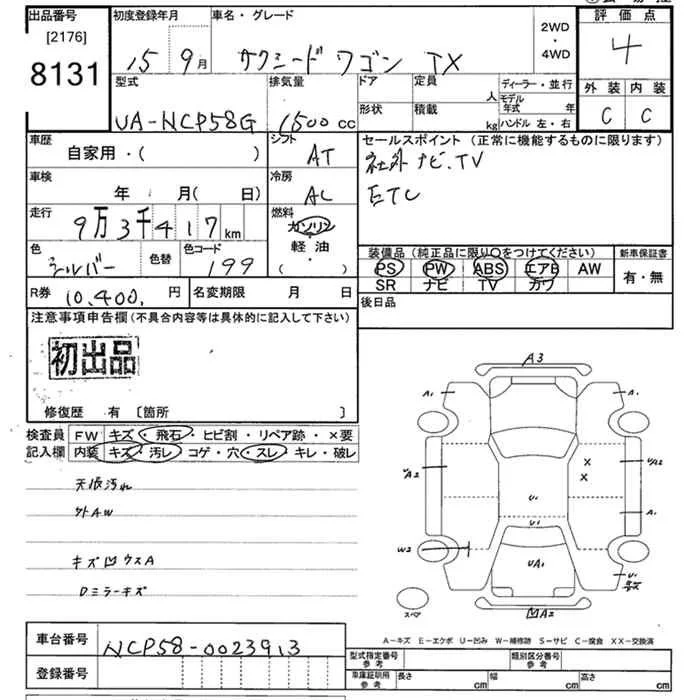 出品番号
[2176]
8131
初度登録年月
15 9月
車名・グレード
サクシードワゴン TX
2WD
・
4WD
評価点
4
外装 内装
C C
型式
UA-NCP58G
排気量
1500 cc
ドア
形状
定員
人
積載
kg
ディーラー・並行
モデル年式 年
ハンドル 左・右
車歴
自家用・( )
シフト
AT
セールスポイント (正常に機能するものに限ります)
社外ナビ.TV
ETC
車検
年 月( 日)
冷房
AC
走行
9万3千417km
燃料
ガソリン
軽油
( )
色
シルバー
色替
色コード
199
装備品 (純正品に限り○をつけてください)
PS PW ABS エアB AW
SR ナビ TV カワ
新車保証書
有・無
R券 10,400. 円
名変期限 月 日
後日品
注意事項申告欄 (不具合内容等は具体的に記入して下さい)
初出品
修復歴 有 〔箇所 〕
検査員
記入欄
FW キズ・飛石・ヒビ割・リペア跡・×要
内装 キズ・汚レ・コゲ・穴・スレ・キレ・破レ
天張汚れ
外AW
キズ凹ウスA
Dミラーキズ
A3
A1
A1
UA2
UA2
X
X
U1
U1
A1
W2
UA1
U1
スペア
A2
A-キズ E-エクボ U-凹み W-補修跡 S-サビ C-腐食 XX-交換済
車台番号
NCP58-0023913
登録番号
型式指定番号
参考
類別区分番号
参考
車庫証明用
参考
長さ cm
幅 cm
高さ cm